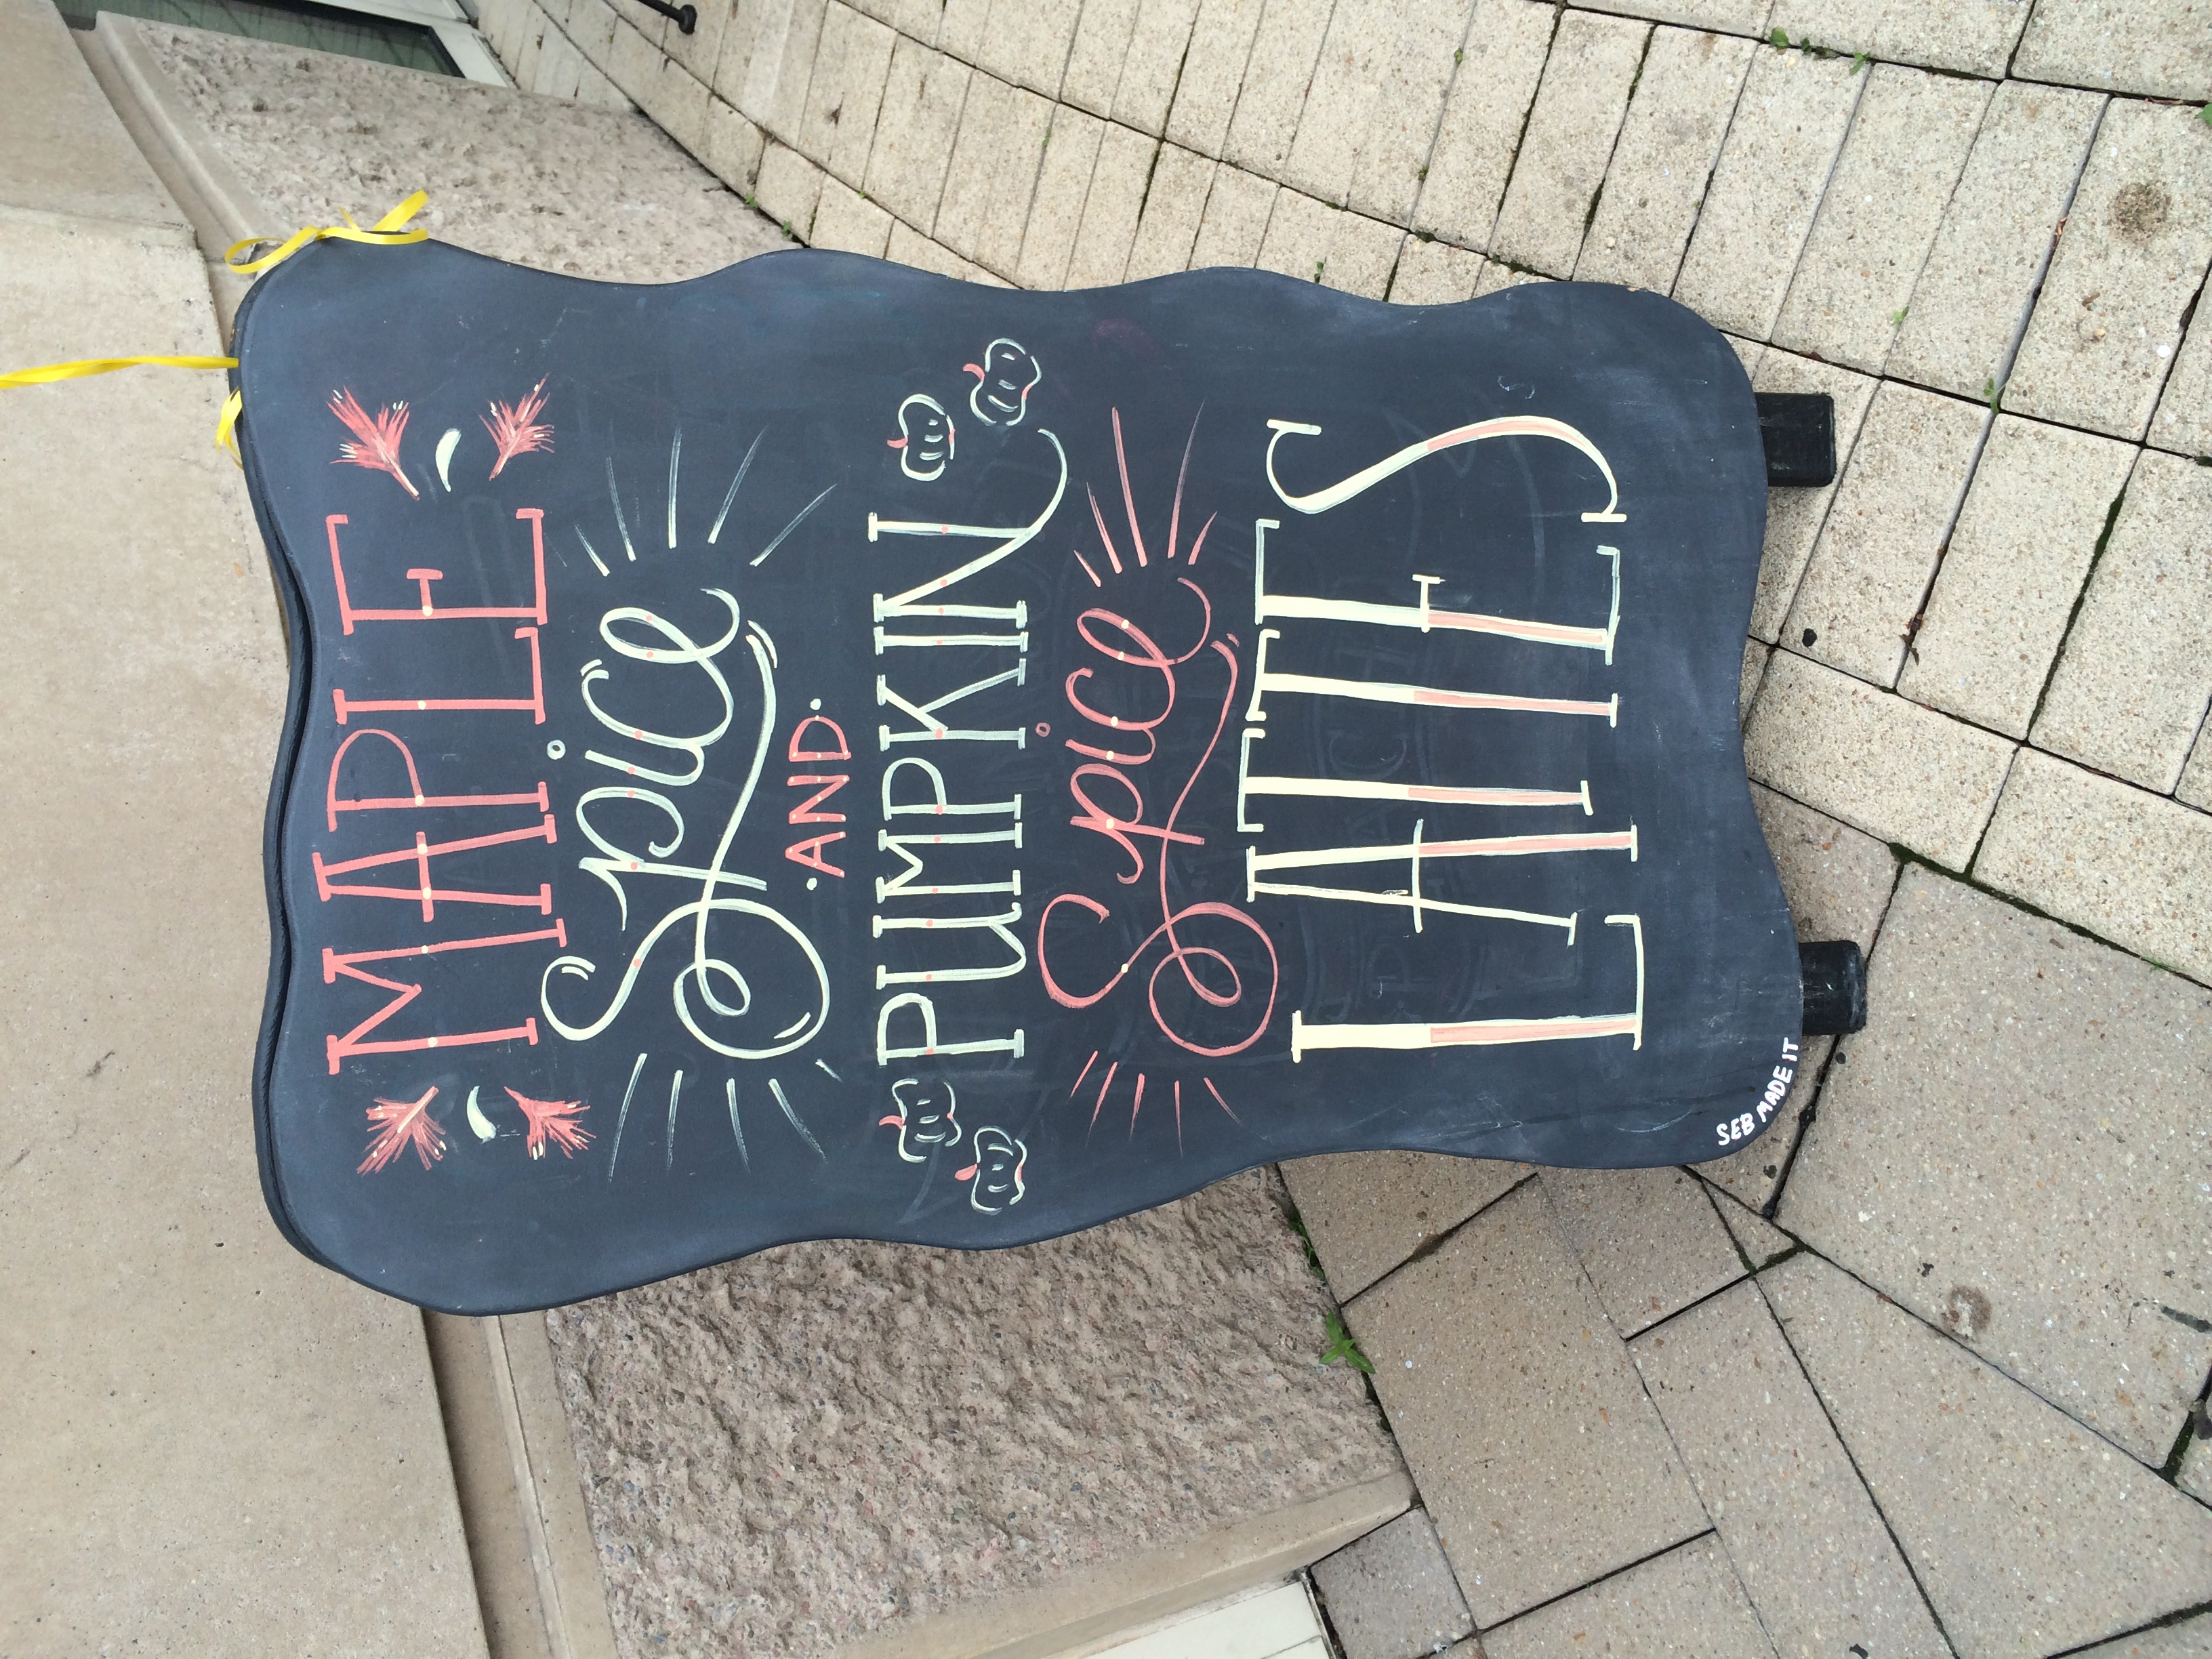 MAPLE
Spice
·AND·
PUMPKIN
Spice
LATTES
SEB MADE IT